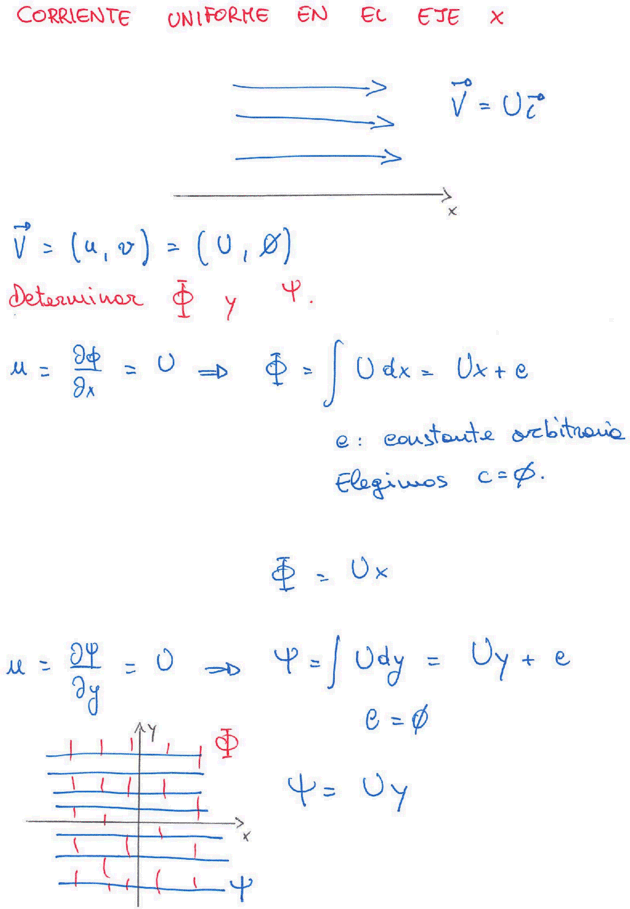 CORRIENTE UNIFORME EN EL EJE X
V⃗ = U i⃗
x
V⃗ = (u, v) = (U, Ø)
Determinar Φ y Ψ.
u = ∂ϕ/∂x = U ⇒ Φ = ∫ U dx = Ux + c
c: constante arbitraria
Elegimos c = Ø.
Φ = Ux
u = ∂Ψ/∂y = U ⇒ Ψ = ∫ U dy = Uy + c
c = Ø
y Φ
Ψ = Uy
x
Ψ